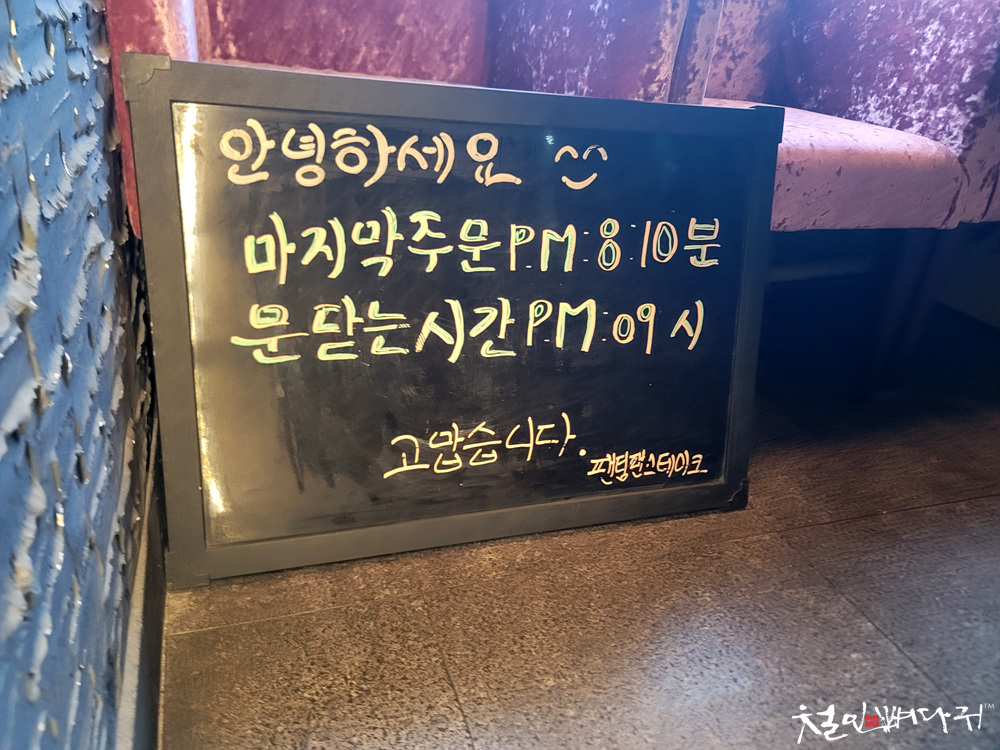 안녕하세요 ^^
마지막주문 PM:8:10분
문닫는시간 PM:09시
고맙습니다.
팬텀랜스테이크